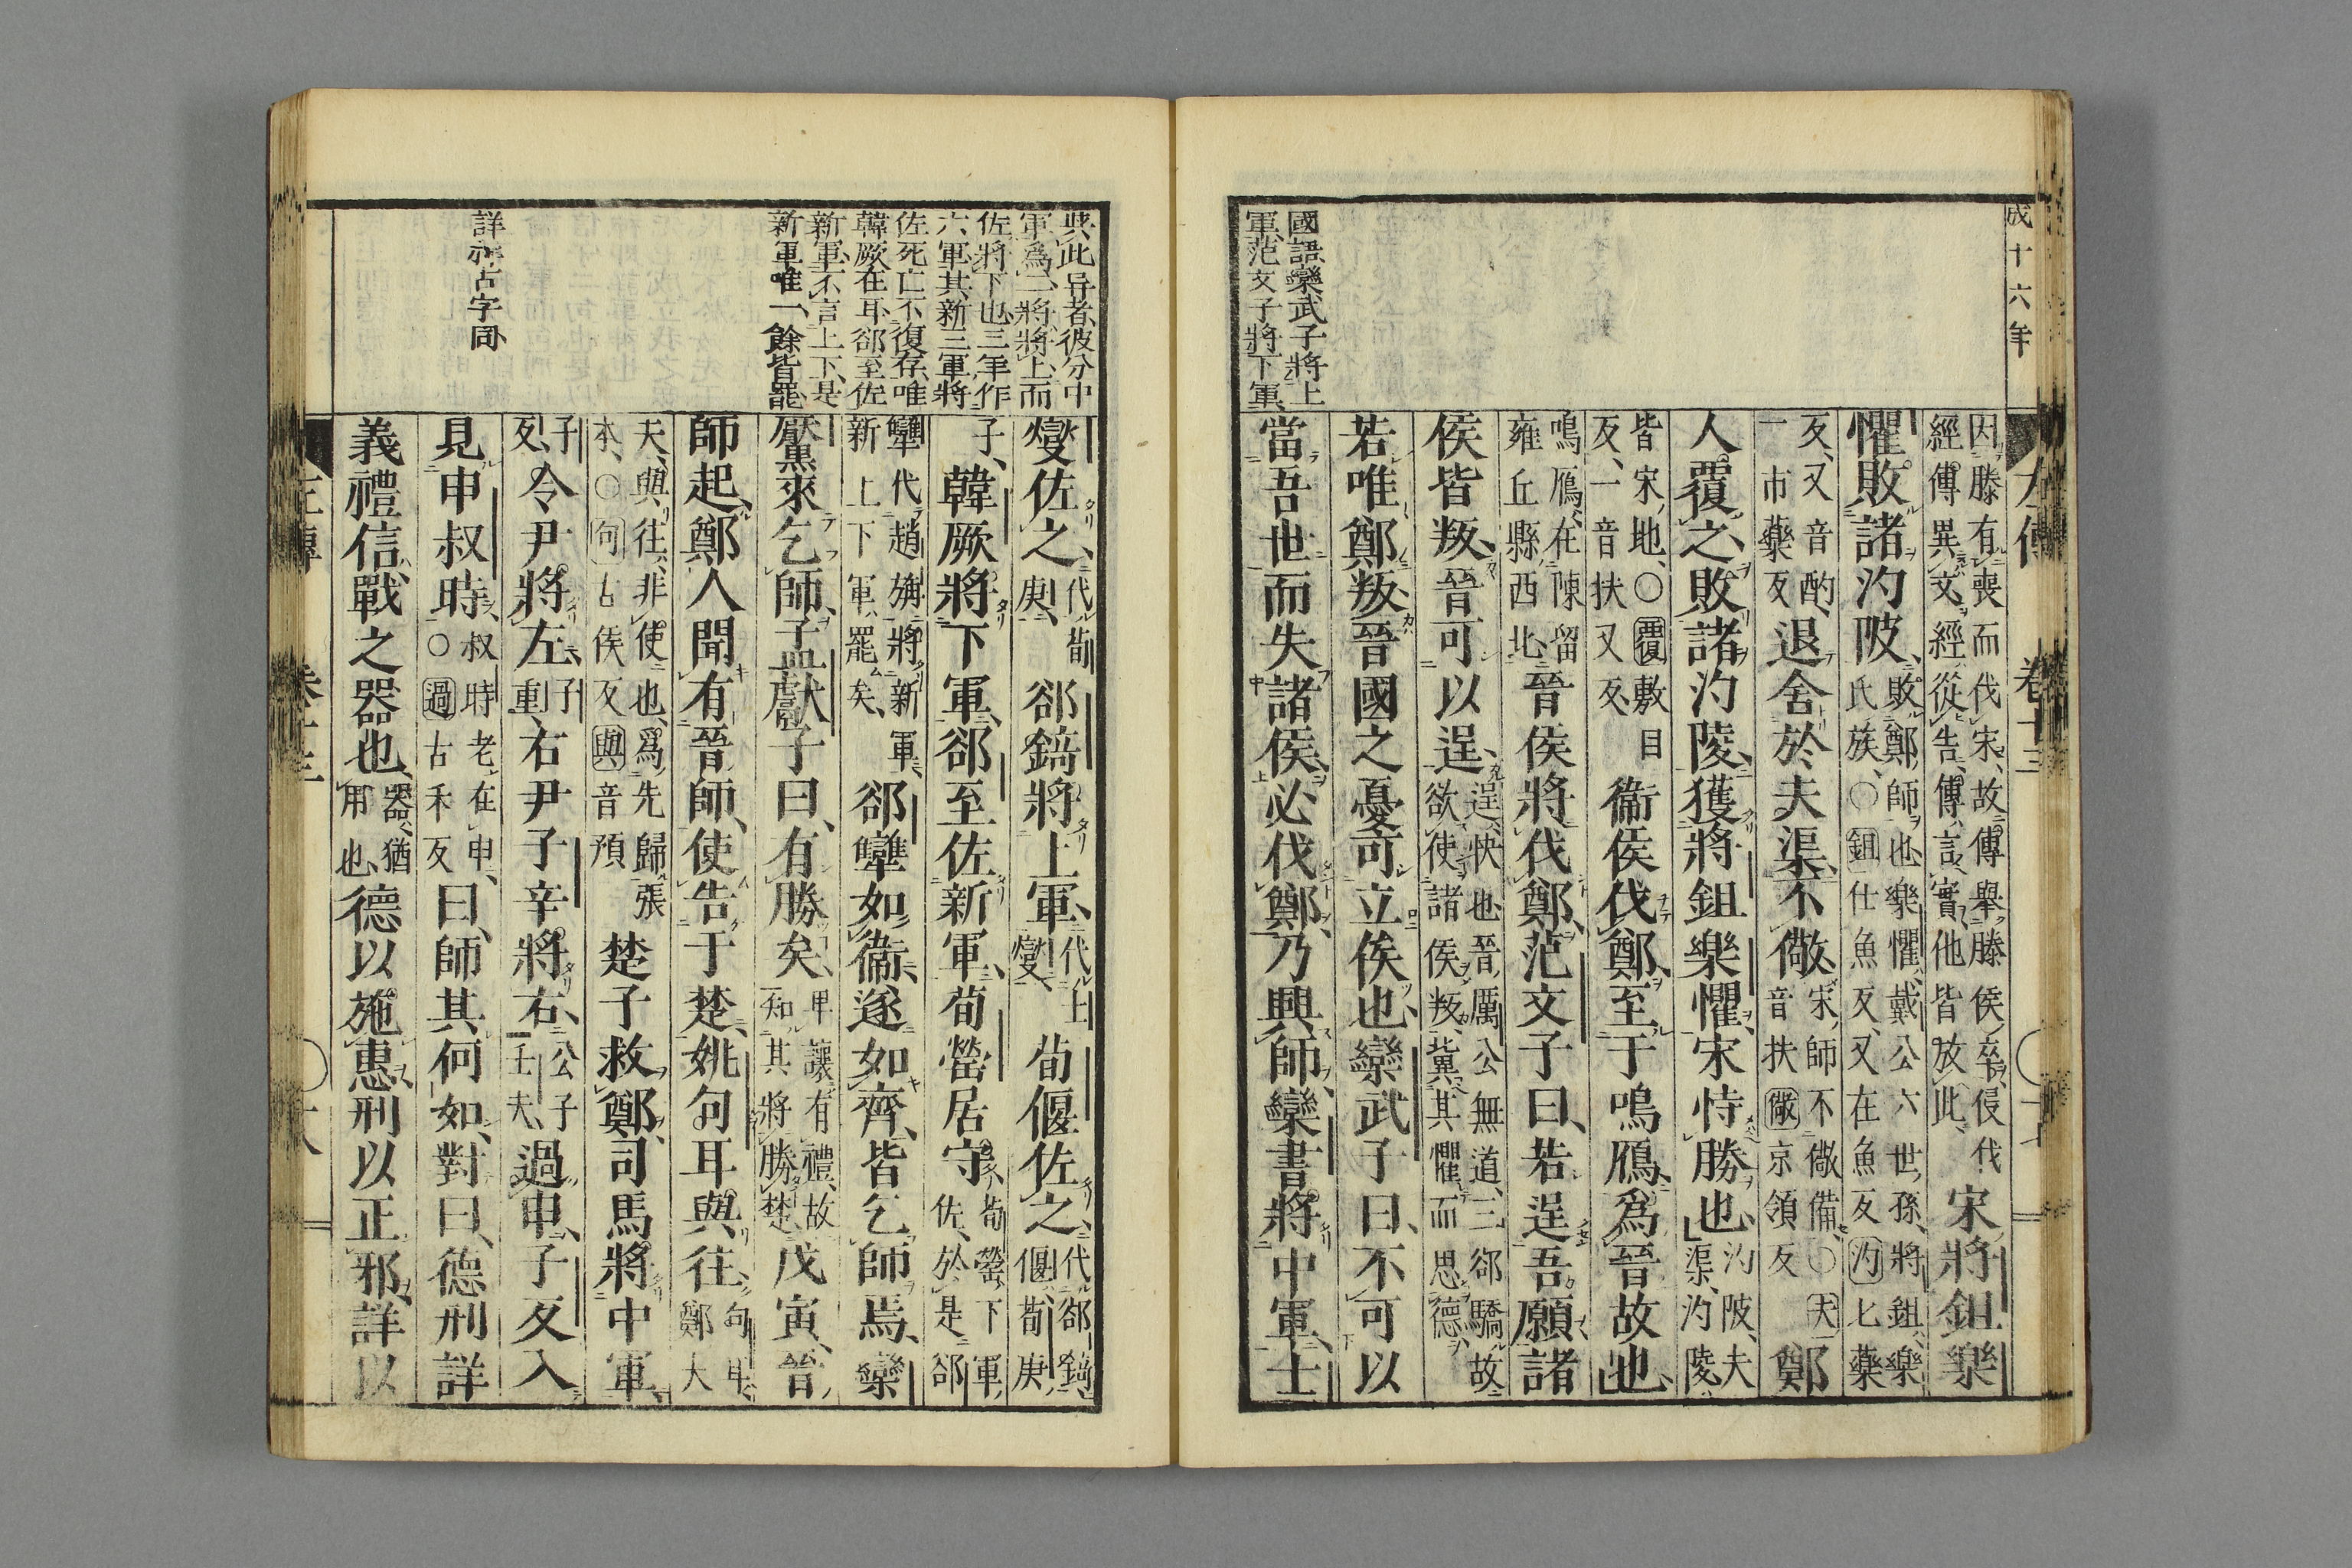 成十六年
國語欒武子將上
軍范文子將下軍
左傳 卷十三
因滕有喪而伐宋故傳舉滕侯卒侵伐
經傳異文經從告傳言實他皆放此
宋將鉏樂
懼敗諸汋陂
敗鄭師也樂懼戴公六世孫將鉏樂
氏族○鉏仕魚反又在魚反汋七藥
反又音酌
一市藥反
退舍於夫渠不儆
宋師不儆備○夫
音扶儆京領反
鄭
人覆之敗諸汋陵獲將鉏樂懼宋恃勝也
汋陂夫
渠汋陵
皆宋地○覆敷目
反一音扶又反
衞侯伐鄭至于鳴鴈爲晉故也
鳴鴈在陳留
雍丘縣西北
晉侯將伐鄭范文子曰若逞吾願諸
侯皆叛晉可以逞
逞快也晉厲公無道三郤驕故
欲使諸侯叛冀其懼而思德
若唯鄭叛晉國之憂可立俟也欒武子曰不可以
當吾世而失諸侯必伐鄭乃興師欒書將中軍士
與此异者彼分中
軍爲二將將上而
佐將下也三年作
六軍其新三軍將
佐死亡不復存唯
韓厥在耳郤至佐
新軍不言上下是
新軍唯一餘皆罷
詳祥古字同
燮佐之
代荀
庚
郤錡將上軍
代士
燮
荀偃佐之
代郤錡
偃荀庚
子
韓厥將下軍郤至佐新軍荀罃居守
荀罃下軍
佐於是郤
犨代趙旃將新軍
新上下軍罷矣
郤犨如衞遂如齊皆乞師焉欒
黶來乞師孟獻子曰有勝矣
卑讓有禮故
知其將勝楚
戊寅晉
師起鄭人聞有晉師使告于楚姚句耳與往
句耳
鄭大
夫與往非使也爲先歸張
本○句古侯反與音預
楚子救鄭司馬將中軍
子
反
令尹將左
子
重
右尹子辛將右
公子
壬夫
過申子反入
見申叔時
叔時老在申
○過古禾反
曰師其何如對曰德刑詳
義禮信戰之器也
器猶
用也
德以施惠刑以正邪詳以